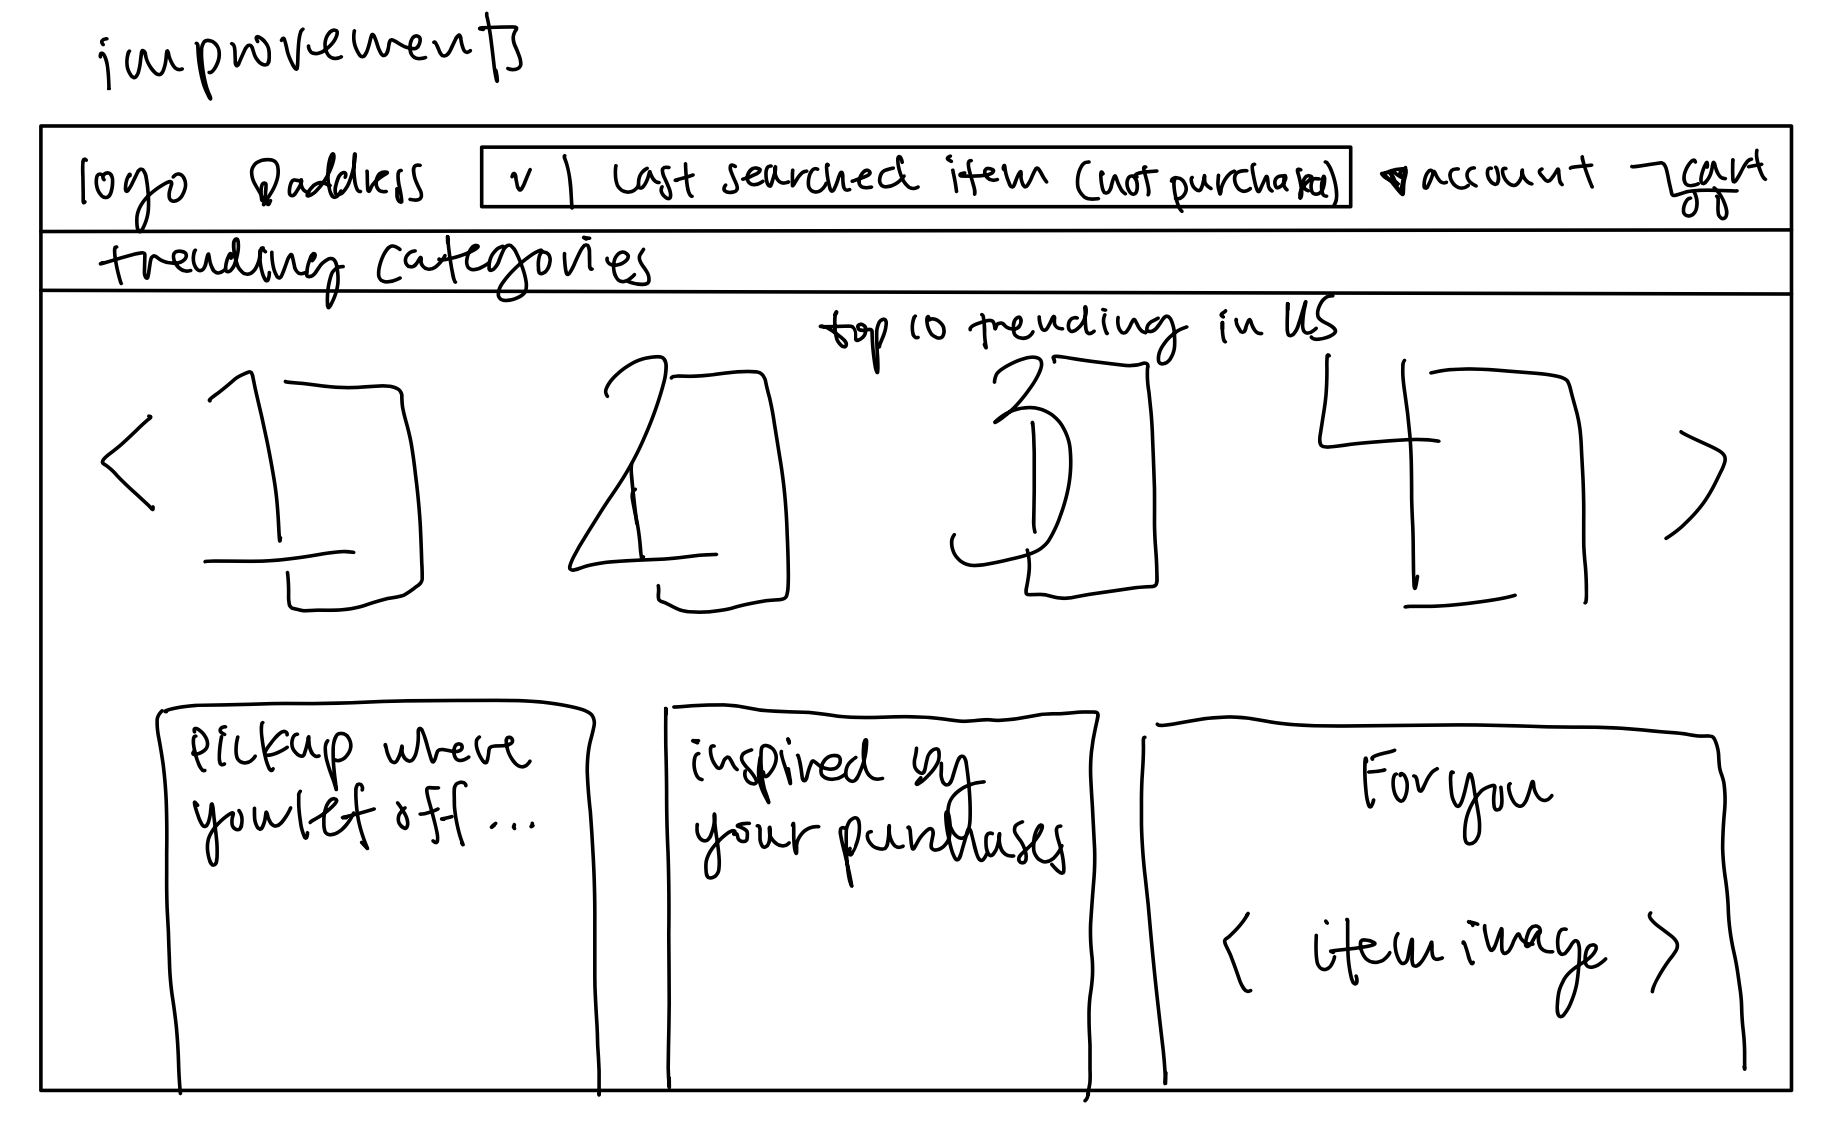 improvements
logo address v | Last searched item (not purchased) account cart
trending categories
top 10 trending in US
< 1 2 3 4 >
Pickup where
you let off ...
inspired by
your purchases
For you
< item image >